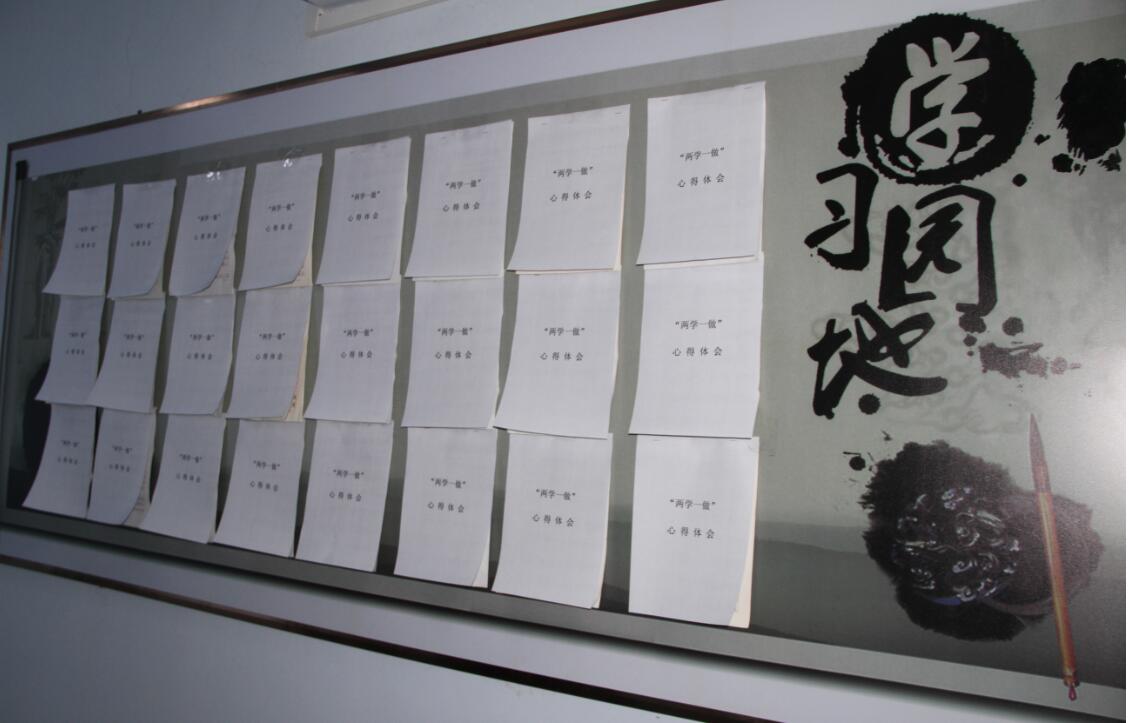 学习园地
“两学一做”
心得体会
“两学一做”
心得体会
“两学一做”
心得体会
“两学一做”
心得体会
“两学一做”
心得体会
“两学一做”
心得体会
“两学一做”
心得体会
“两学一做”
心得体会
“两学一做”
心得体会
“两学一做”
心得体会
“两学一做”
心得体会
“两学一做”
心得体会
“两学一做”
心得体会
“两学一做”
心得体会
“两学一做”
心得体会
“两学一做”
心得体会
“两学一做”
心得体会
“两学一做”
心得体会
“两学一做”
心得体会
“两学一做”
心得体会
“两学一做”
心得体会
“两学一做”
心得体会
“两学一做”
心得体会
“两学一做”
心得体会